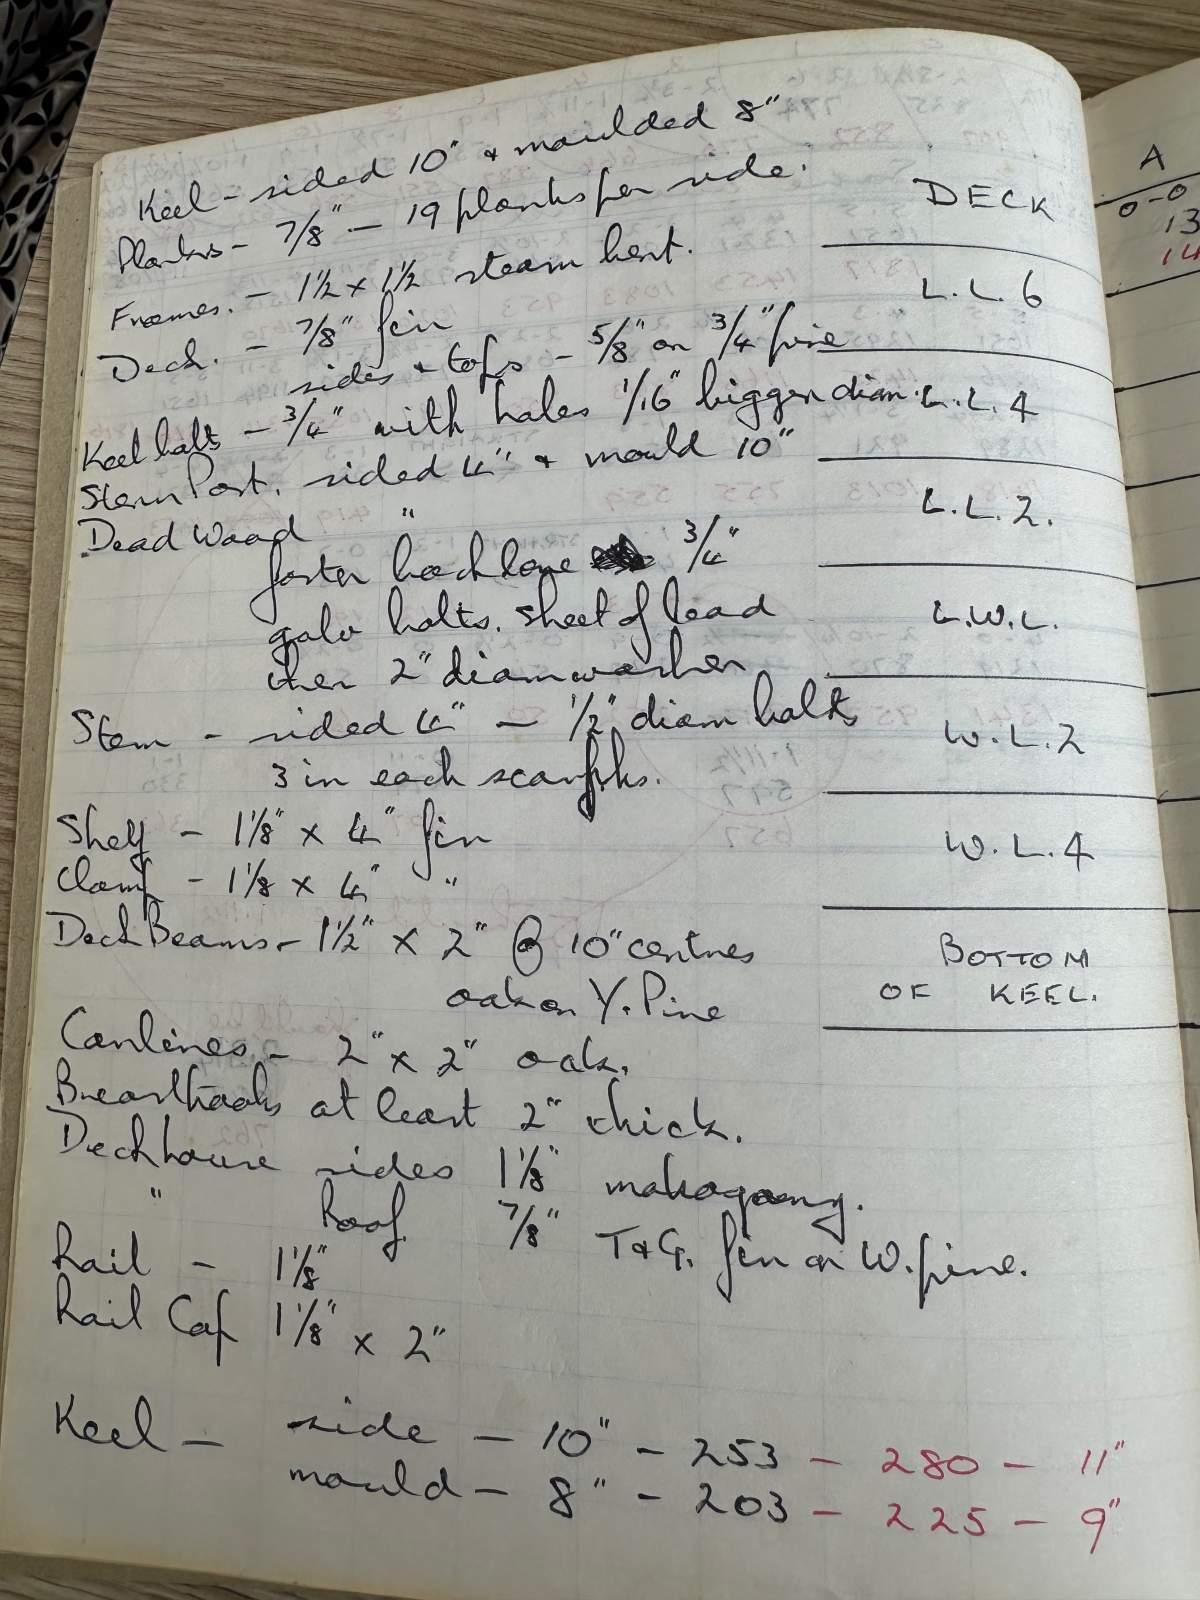 Keel - sided 10" & moulded 8"
Planks - 7/8" - 19 planks per side.
Frames. - 1 1/2 x 1 1/2 steam bent.
Deck. - 7/8" fir
sides & tops - 5/8" or 3/4" pine
Keel bolts - 3/4" with holes 1/16" bigger diam.
Stern Post. sided 4" & mould 10"
Dead Wood "
fasten backbone 3/4"
galv bolts. Sheet of lead
then 2" diam washer
Stem - sided 4" - 1/2" diam bolts
3 in each scarphs.
Shelf - 1 1/8" x 4" fir
Clamp - 1 1/8 x 4" "
Deck Beams - 1 1/2" x 2" @ 10" centres
oak or Y. Pine
Carlines - 2" x 2" oak.
Breasthooks at least 2" thick.
Deckhouse sides 1 1/8" mahogany.
" Roof. 7/8" T & G. fir or W. pine.
Rail - 1 1/8"
Rail Cap 1 1/8" x 2"
Keel - side - 10" - 253 - 280 - 11"
mould - 8" - 203 - 225 - 9"
DECK
L.L.6
L.L.4
L.L.2.
L.W.L.
W.L.2
W.L.4
BOTTOM
OF KEEL.
A
0-0
13
14